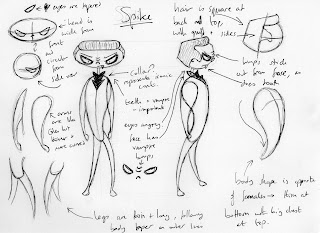 eyes are tapered
Spike
head is
wide from
front
but
circular
from
side view
hair is square at
back and top,
wide quiff + sides
collar?
represents iconic
coat.
teeth = vampire -
important
eyes angry
face has
vampire
lumps
lumps stick
out from base, as
does teeth
arms are
like
this but
thinner +
more curved
legs are thin + long, following
body taper on outer lines
body shape is opposite
of females - thin at
bottom with big chest at
top.